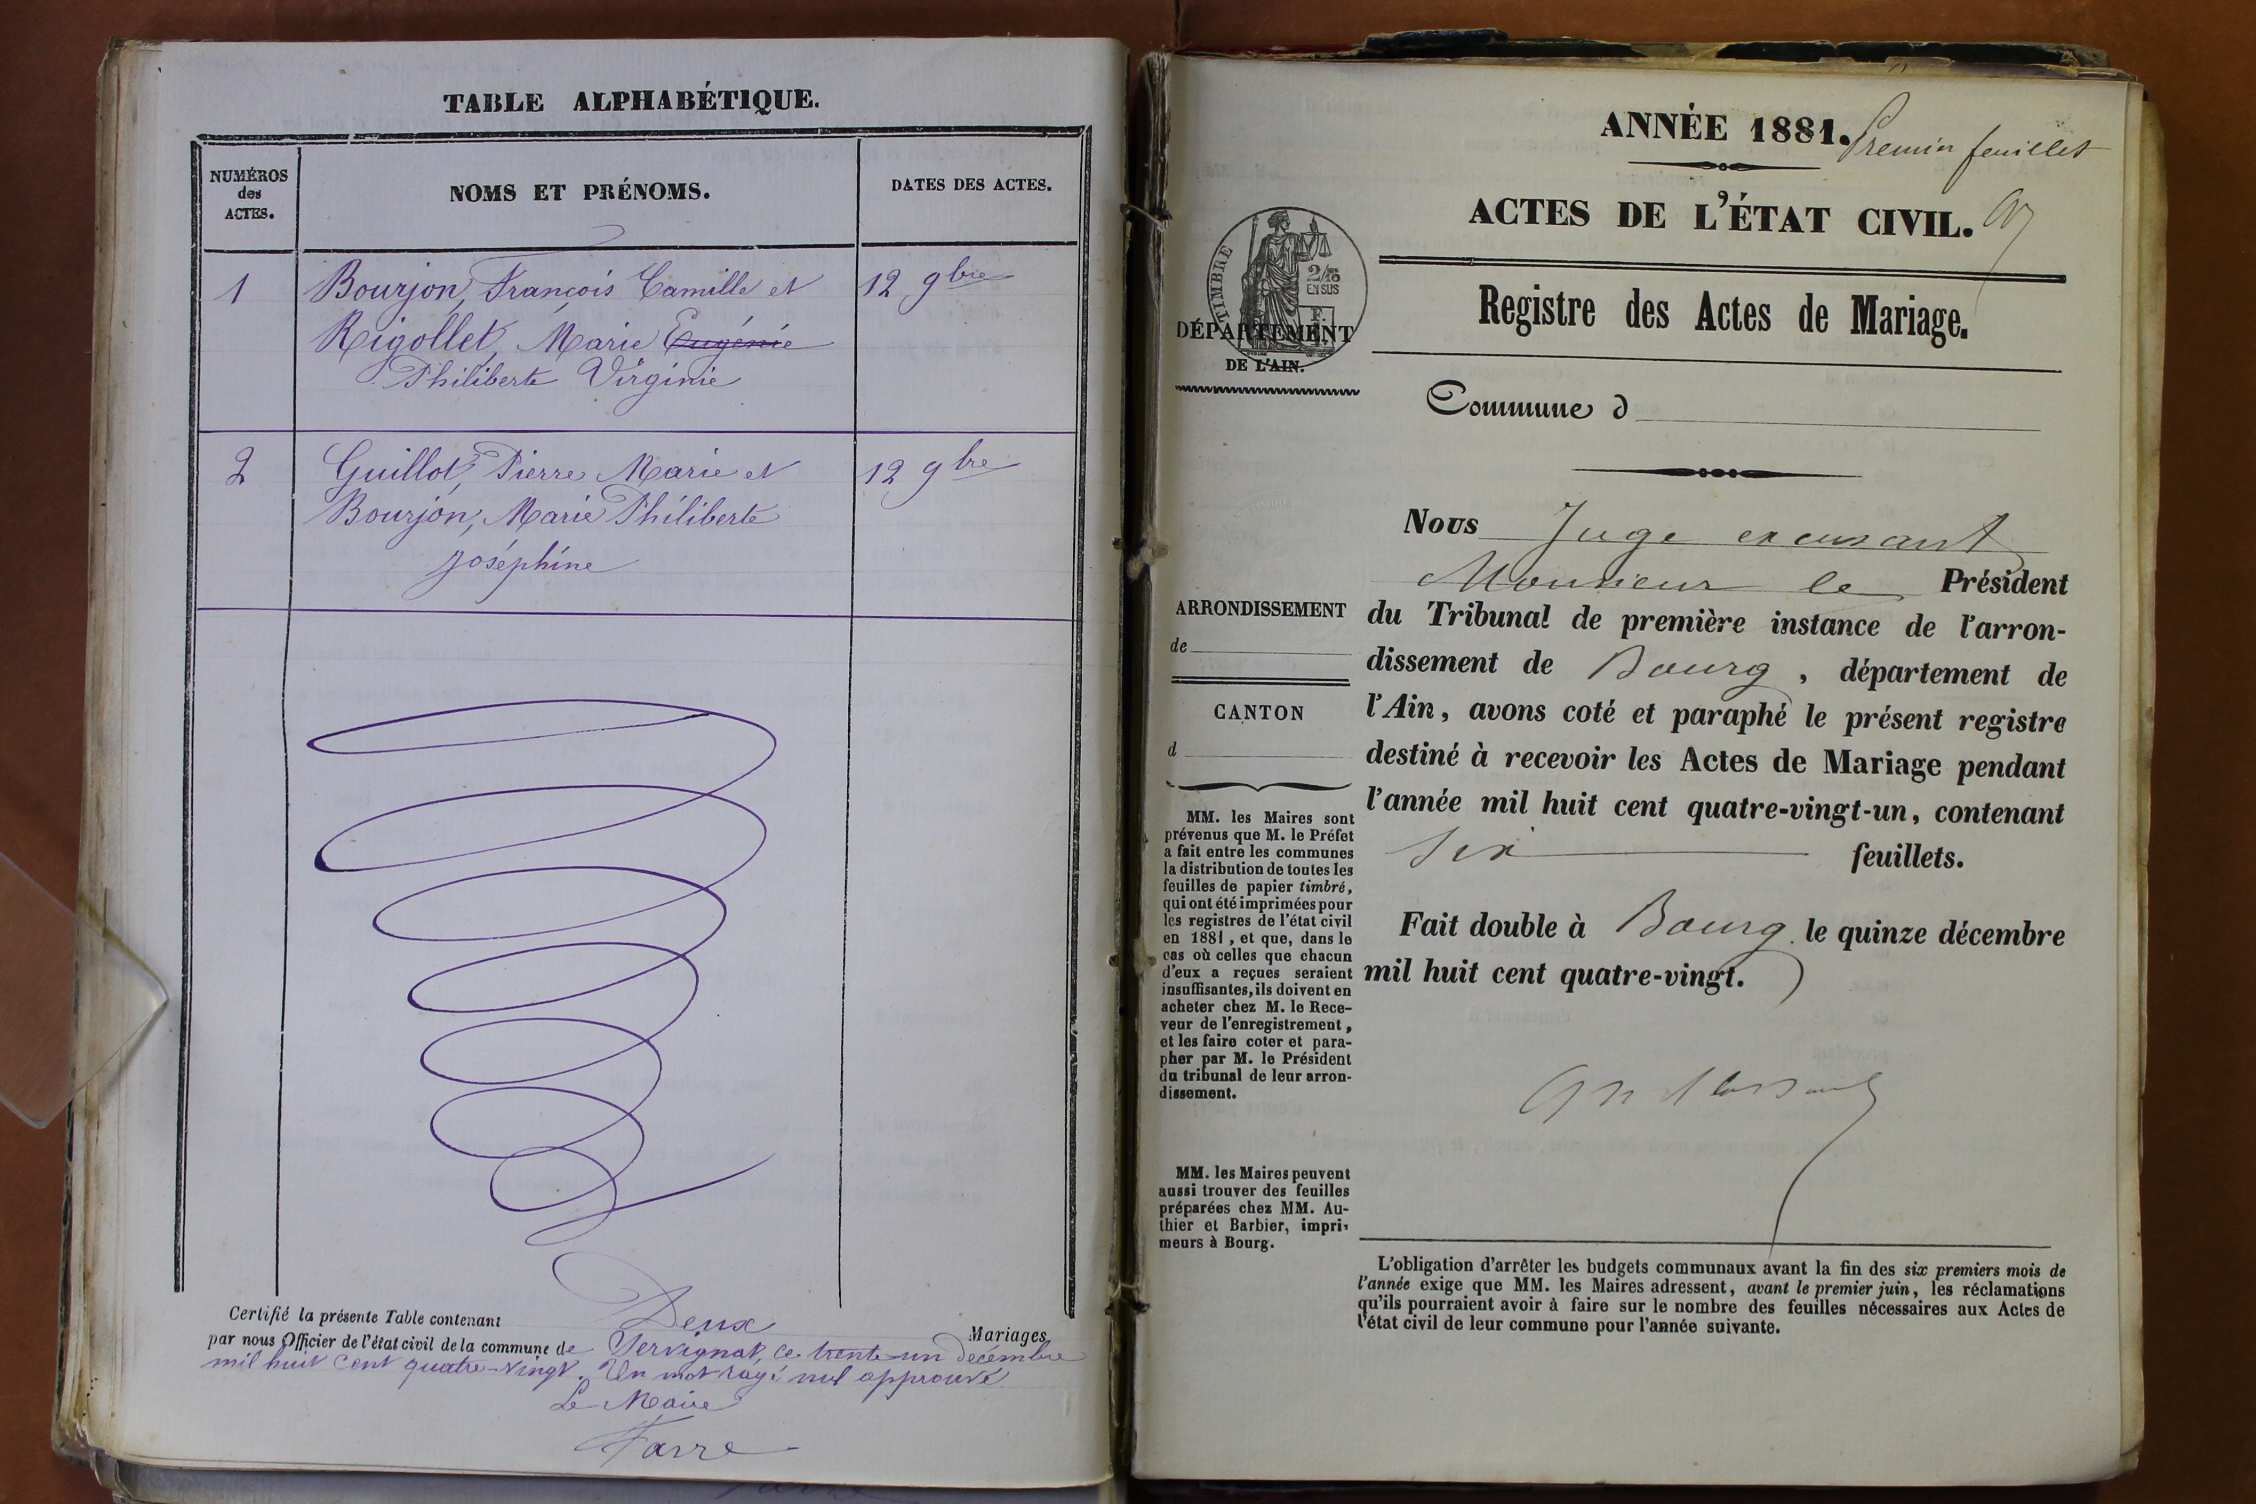 TABLE ALPHABÉTIQUE.
NUMÉROS
des
ACTES.
NOMS ET PRÉNOMS.
DATES DES ACTES.
1
Bourjon, François Camille et
12 9bre
Rigollet, Marie Eugénie
Philiberte Virginie
2
Guillot, Pierre Marie et
12 9bre
Bourjon, Marie Philiberte
Joséphine
Certifié la présente Table contenant Deux Mariages
par nous Officier de l'état civil de la commune de Servignat, ce trente-un décembre
mil huit cent quatre-vingt. Un mot rayé nul approuvé
Le Maire
Favre
ANNÉE 1881.
Premier feuillet
ACTES DE L'ÉTAT CIVIL.
TIMBRE
2/10
EN SUS
DÉPARTEMENT
DE L'AIN.
Registre des Actes de Mariage.
Commune d
Nous Juge excusant
Monsieur le Président
du Tribunal de première instance de l'arron-
dissement de Bourg, département de
l'Ain, avons coté et paraphé le présent registre
destiné à recevoir les Actes de Mariage pendant
l'année mil huit cent quatre-vingt-un, contenant
six feuillets.
Fait double à Bourg, le quinze décembre
mil huit cent quatre-vingt.
ARRONDISSEMENT
de
CANTON
d
MM. les Maires sont
prévenus que M. le Préfet
a fait entre les communes
la distribution de toutes les
feuilles de papier timbré,
qui ont été imprimées pour
les registres de l'état civil
en 1881, et que, dans le
cas où celles que chacun
d'eux a reçues seraient
insuffisantes, ils doivent en
acheter chez M. le Rece-
veur de l'enregistrement,
et les faire coter et para-
pher par M. le Président
du tribunal de leur arron-
dissement.
MM. les Maires peuvent
aussi trouver des feuilles
préparées chez MM. Au-
thier et Barbier, impri-
meurs à Bourg.
L'obligation d'arrêter les budgets communaux avant la fin des six premiers mois de
l'année exige que MM. les Maires adressent, avant le premier juin, les réclamations
qu'ils pourraient avoir à faire sur le nombre des feuilles nécessaires aux Actes de
l'état civil de leur commune pour l'année suivante.